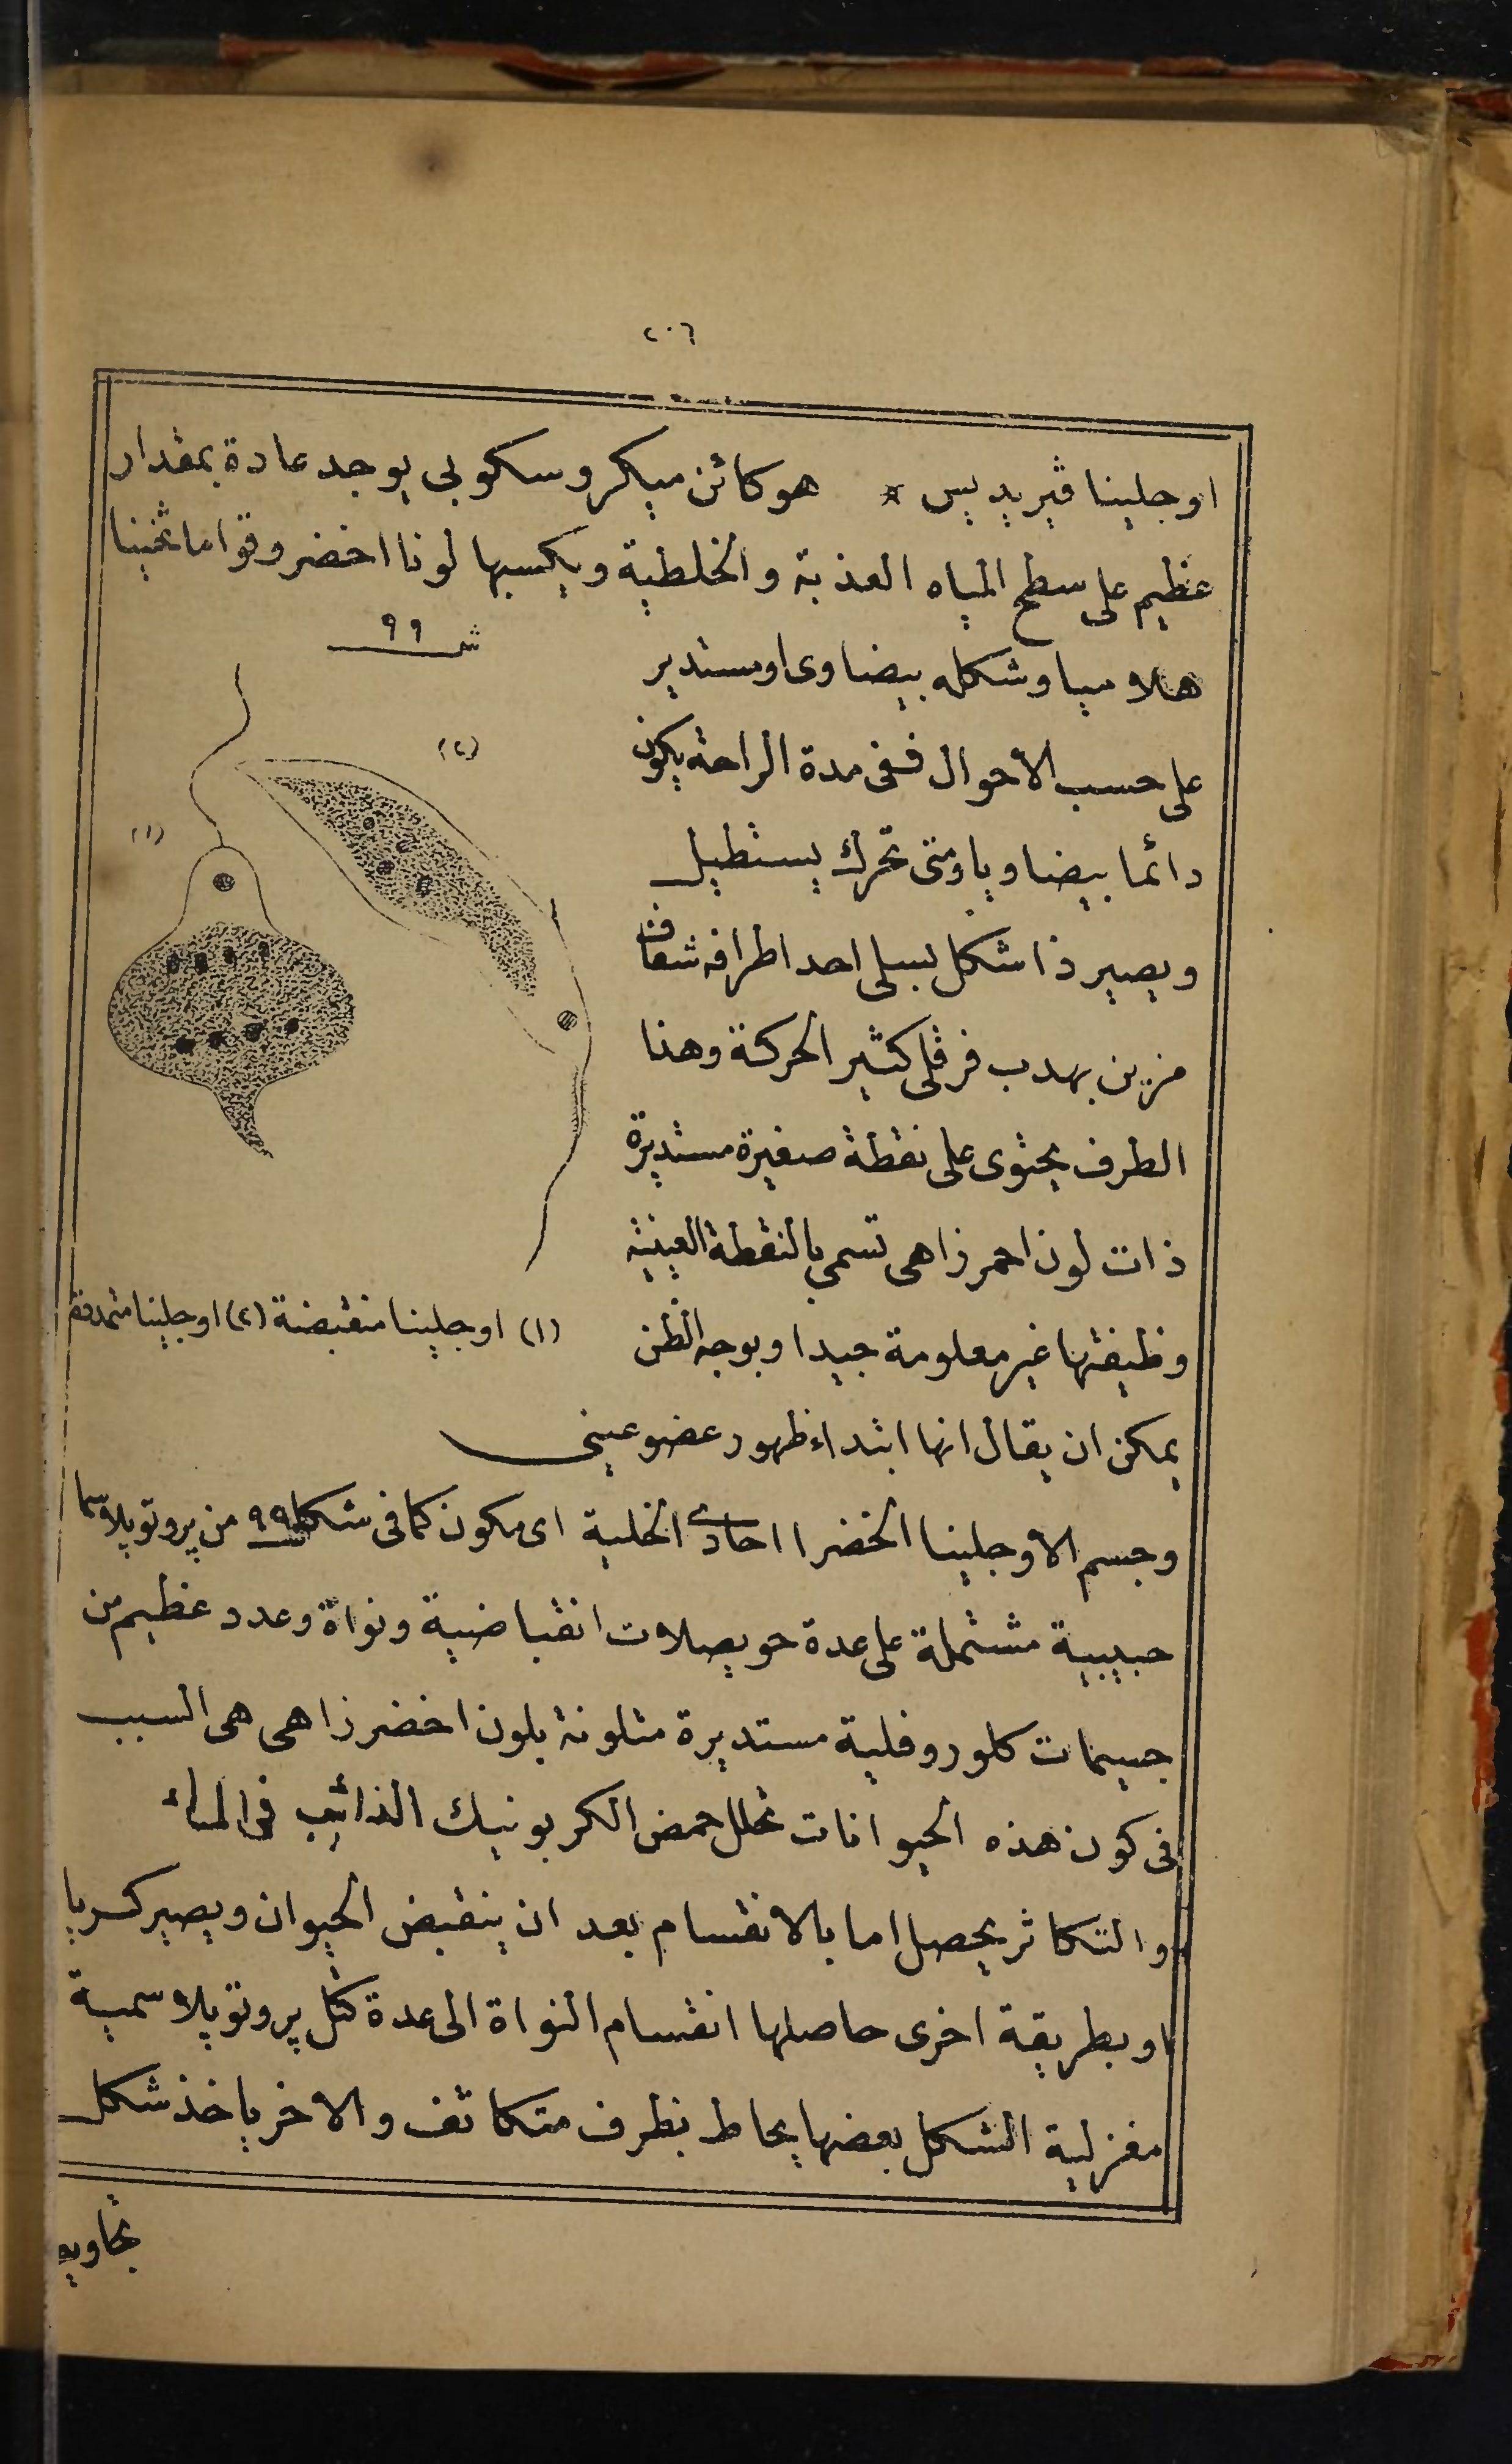 ٢٠٦
اوجلينا ڤيريديس * هو كائن ميكروسكوبى يوجد عادة بمقدار
عظيم على سطح المياه العذبة والخلطية ويكسبها لونا اخضر وقواما ثخينا
هلاميا وشكله بيضاوى او مستدير
على حسب الاحوال ففى مدة الراحة يكون
دائما بيضاويا ومتى تحرك يستطيل
ويصير ذا شكل ابرى احد اطرافه شفاف
مزين بهدب فرقلى كثير الحركة وهذا
الطرف يحتوى على نقطة صغيرة مستديرة
ذات لون احمر زاهى تسمى بالنقطة العينية
وظيفتها غير معلومة جيدا وبوجه الظن
يمكن ان يقال انها ابتداء ظهور عضو عينى
ش ٩٩
(٢)
(١)
(١) اوجلينا منقبضة (٢) اوجلينا متمددة
وجسم الاوجلينا الخضرا احادى الخلية اى مكون كما فى شكل ٩٩ من پروتوپلاسما
حبيبية مشتملة على عدة حويصلات انقباضية ونواة وعدد عظيم من
جسيمات كلوروفلية مستديرة متلونة بلون اخضر زاهى هى السبب
فى كون هذه الحيوانات تحلل حمض الكربونيك الذائب فى الماء
والتكاثر يحصل اما بالانقسام بعد ان ينقبض الحيوان ويصير كريا
او بطريقة اخرى حاصلها انقسام النواة الى عدة كتل پروتوپلاسمية
مغزلية الشكل بعضها يحاط بظرف متكاثف والاخر ياخذ شكل